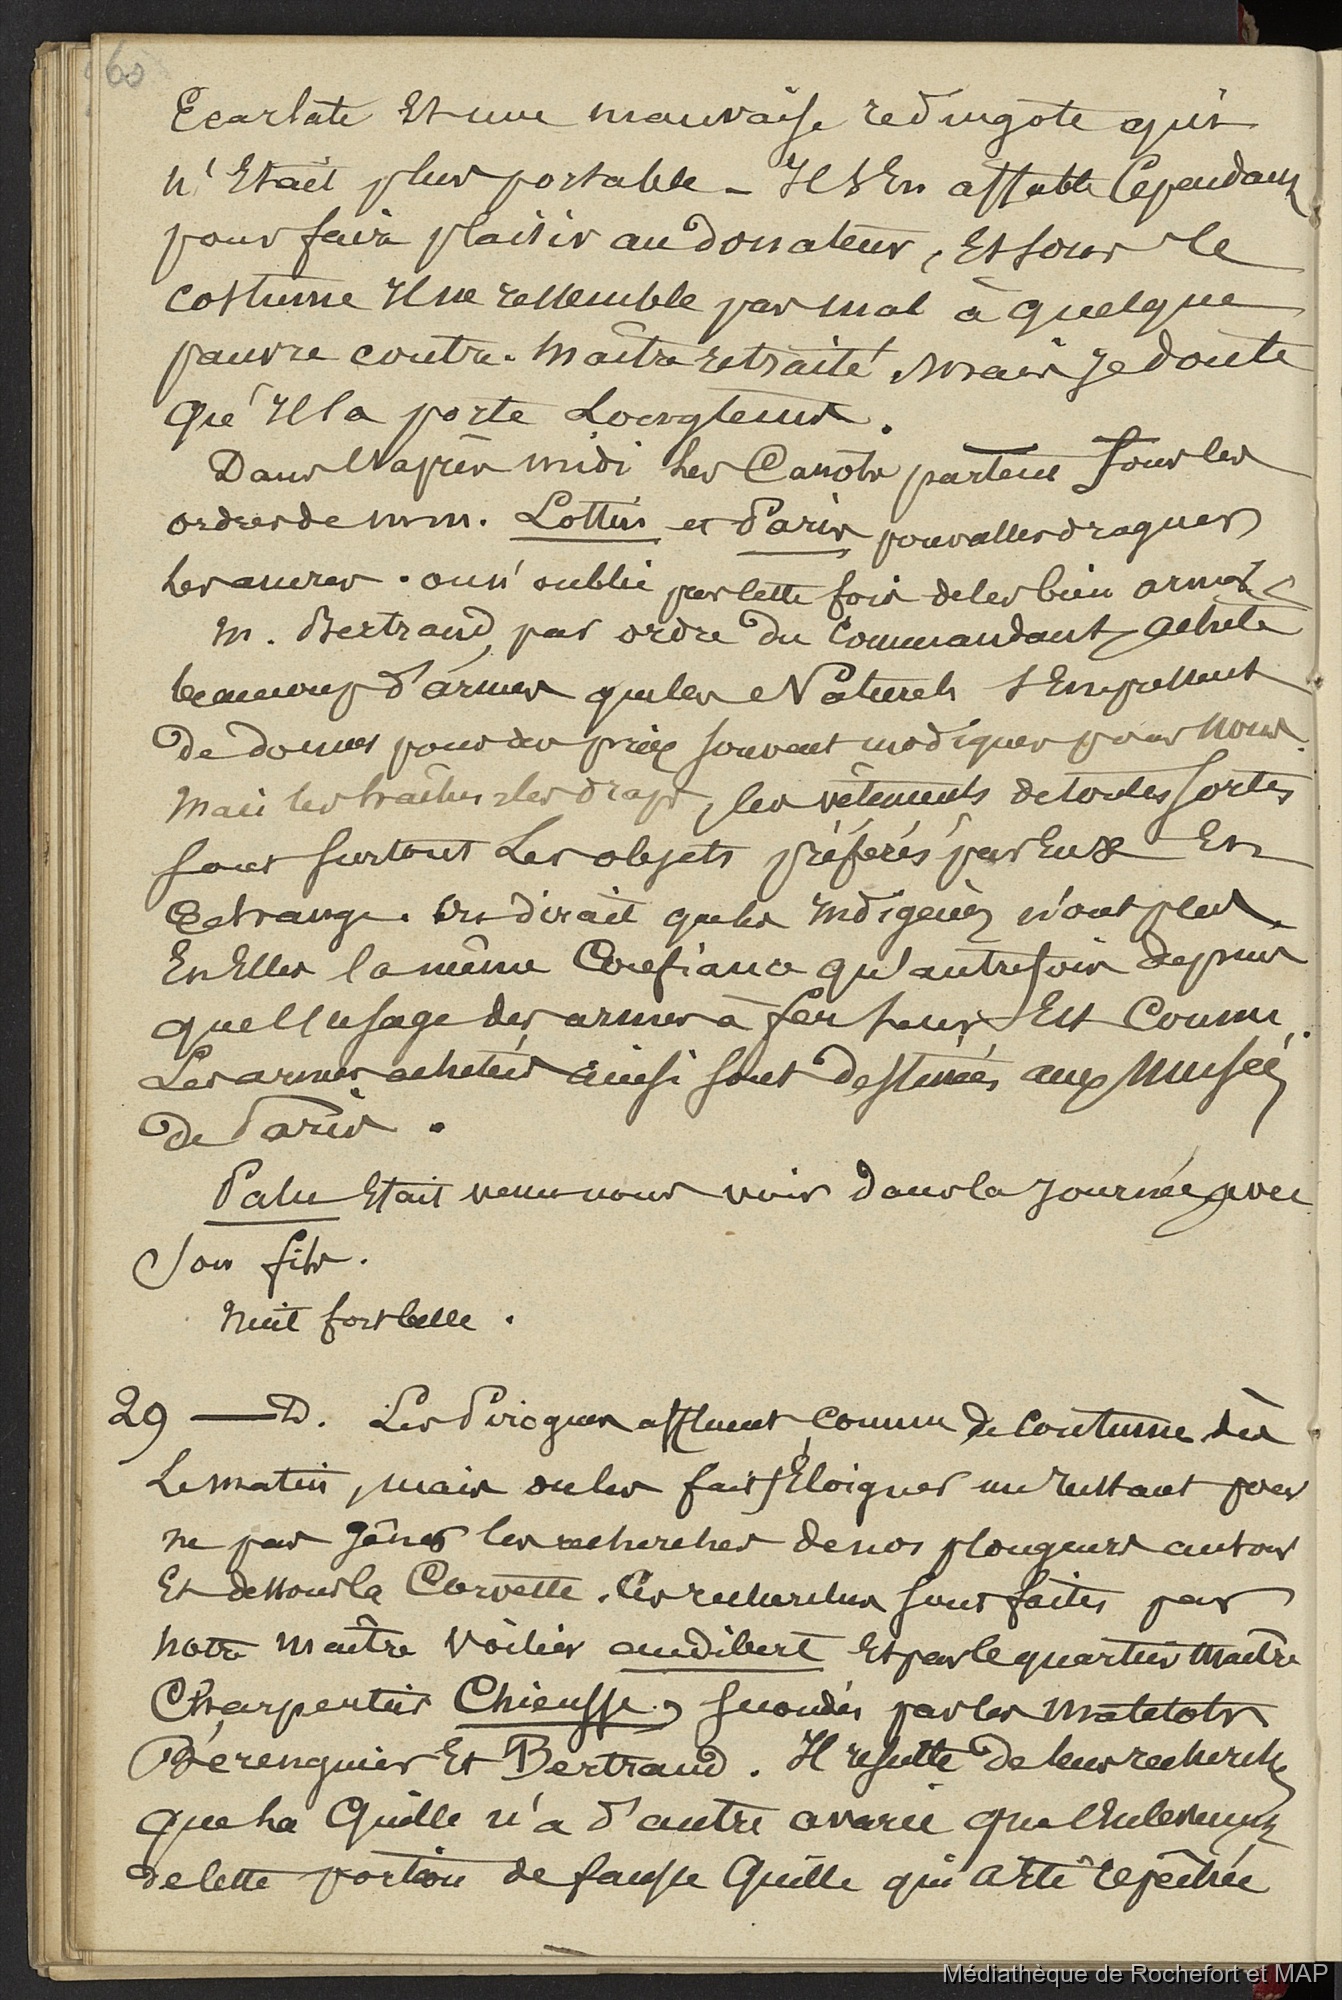 60
Ecarlate Et une mauvaise redingote qui
n'Etait plus portable – Il S'En affuble Cependant
pour faire plaisir au donateur, Et sous ce
costume Il ne ressemble pas mal à quelque
pauvre contre-maître retraité, mais Je doute
qu'Il la porte Longtems.
Dans l'après midi les Canots partent sous les
ordres de mm. Lottin et Paris pour aller draguer
les ancres. on n'oublie pas cette fois de les bien armer
M. Bertrand, par ordre du Commandant, achète
beaucoup d'armes que les Naturels S'Empressent
de donner pour des prix souvent modiques pour nous.
Mais les haches, les draps, les vêtements de toutes sortes
sont surtout Les objets préférés par Eux En
Echange. On dirait que les Indigènes n'ont plus
En Elles la même Confiance qu'autrefois depuis
que l'usage des armes à feu leur Est Connu.
Les armes achetées ainsi sont destinées aux Musées
de Paris.
Palu Etait venu nous voir dans la Journée avec
Son fils.
Nuit fort belle.
29 — D. Les Pirogues affluent, Comme de Coutume dès
Le matin, mais on les fait Eloigner un Instant pour
ne pas Gêner les recherches de nos plongeurs autour
Et dessous la Corvette. Ces recherches sont faites par
notre maître Voilier audibert Et par le quartier Maître
Charpentier Chieusse, secondés par les Matelots
Bérenguier Et Bertrand. Il résulte de leurs recherches
que La Quille n'a d'autre avarie que l'Enlèvement
de cette portion de fausse Quille qui a Eté repêchée
Médiathèque de Rochefort et MAP